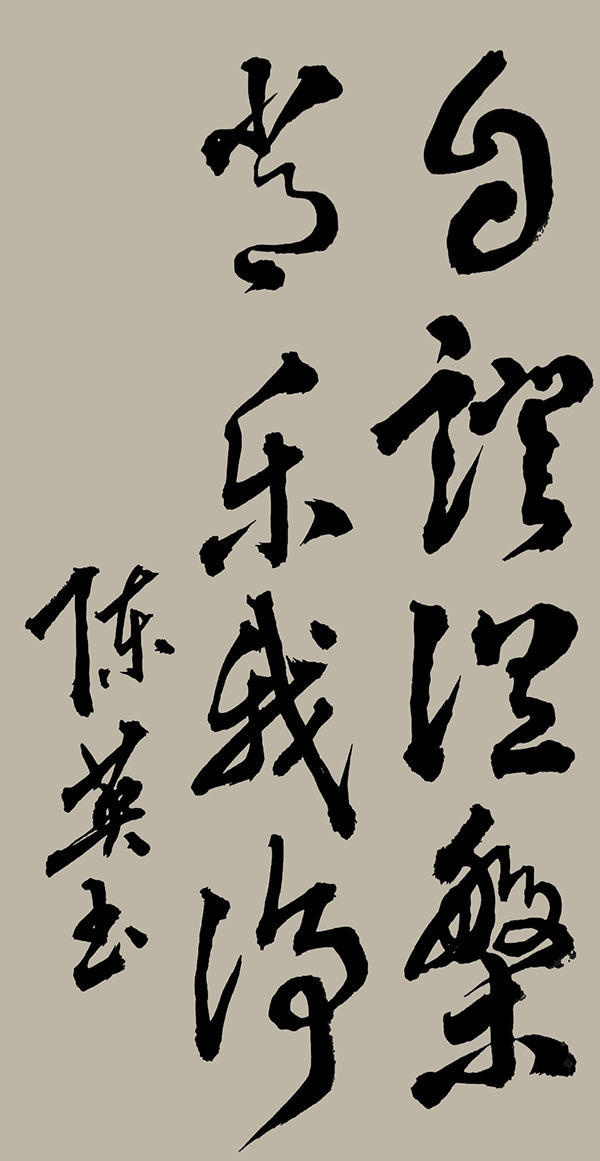 自證涅槃
常乐我淨
陈英玉